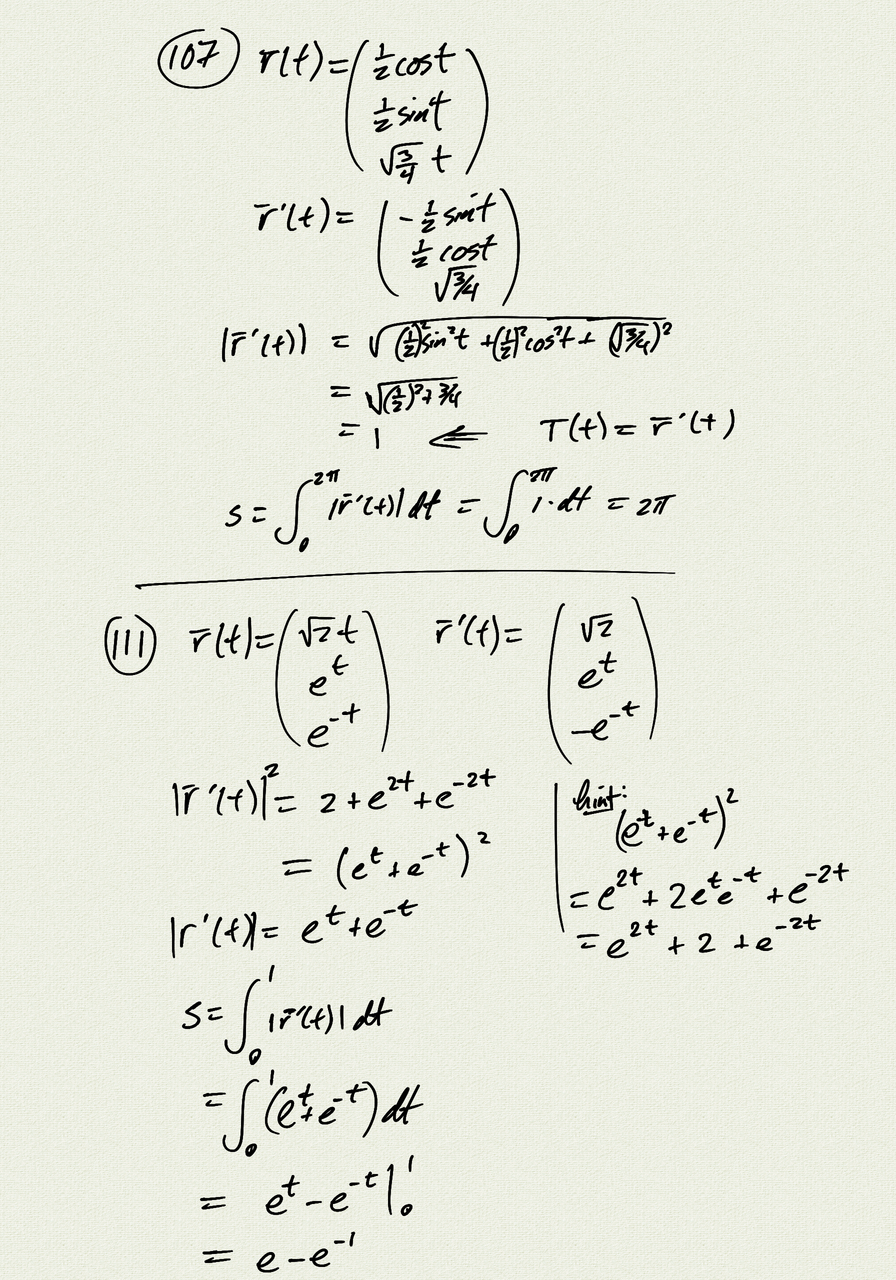 107 r̄(t) = ( ½ cos t
½ sin t
√¾ t )
r̄'(t) = ( -½ sin t
½ cos t
√¾ )
|r̄'(t)| = √( (½)² sin² t + (½)² cos² t + (√¾)² )
= √( (½)² + ¾ )
= 1 ⇐ T(t) = r̄'(t)
s = ∫₀^2π |r̄'(t)| dt = ∫₀^2π 1·dt = 2π
111 r̄(t) = ( √2 t r̄'(t) = ( √2
e^t e^t
e^-t ) -e^-t )
|r̄'(t)|² = 2 + e^2t + e^-2t
= (e^t + e^-t)²
|r'(t)| = e^t + e^-t
hint:
(e^t + e^-t)²
= e^2t + 2e^t e^-t + e^-2t
= e^2t + 2 + e^-2t
s = ∫₀^1 |r̄'(t)| dt
= ∫₀^1 (e^t + e^-t) dt
= e^t - e^-t |₀^1
= e - e^-1